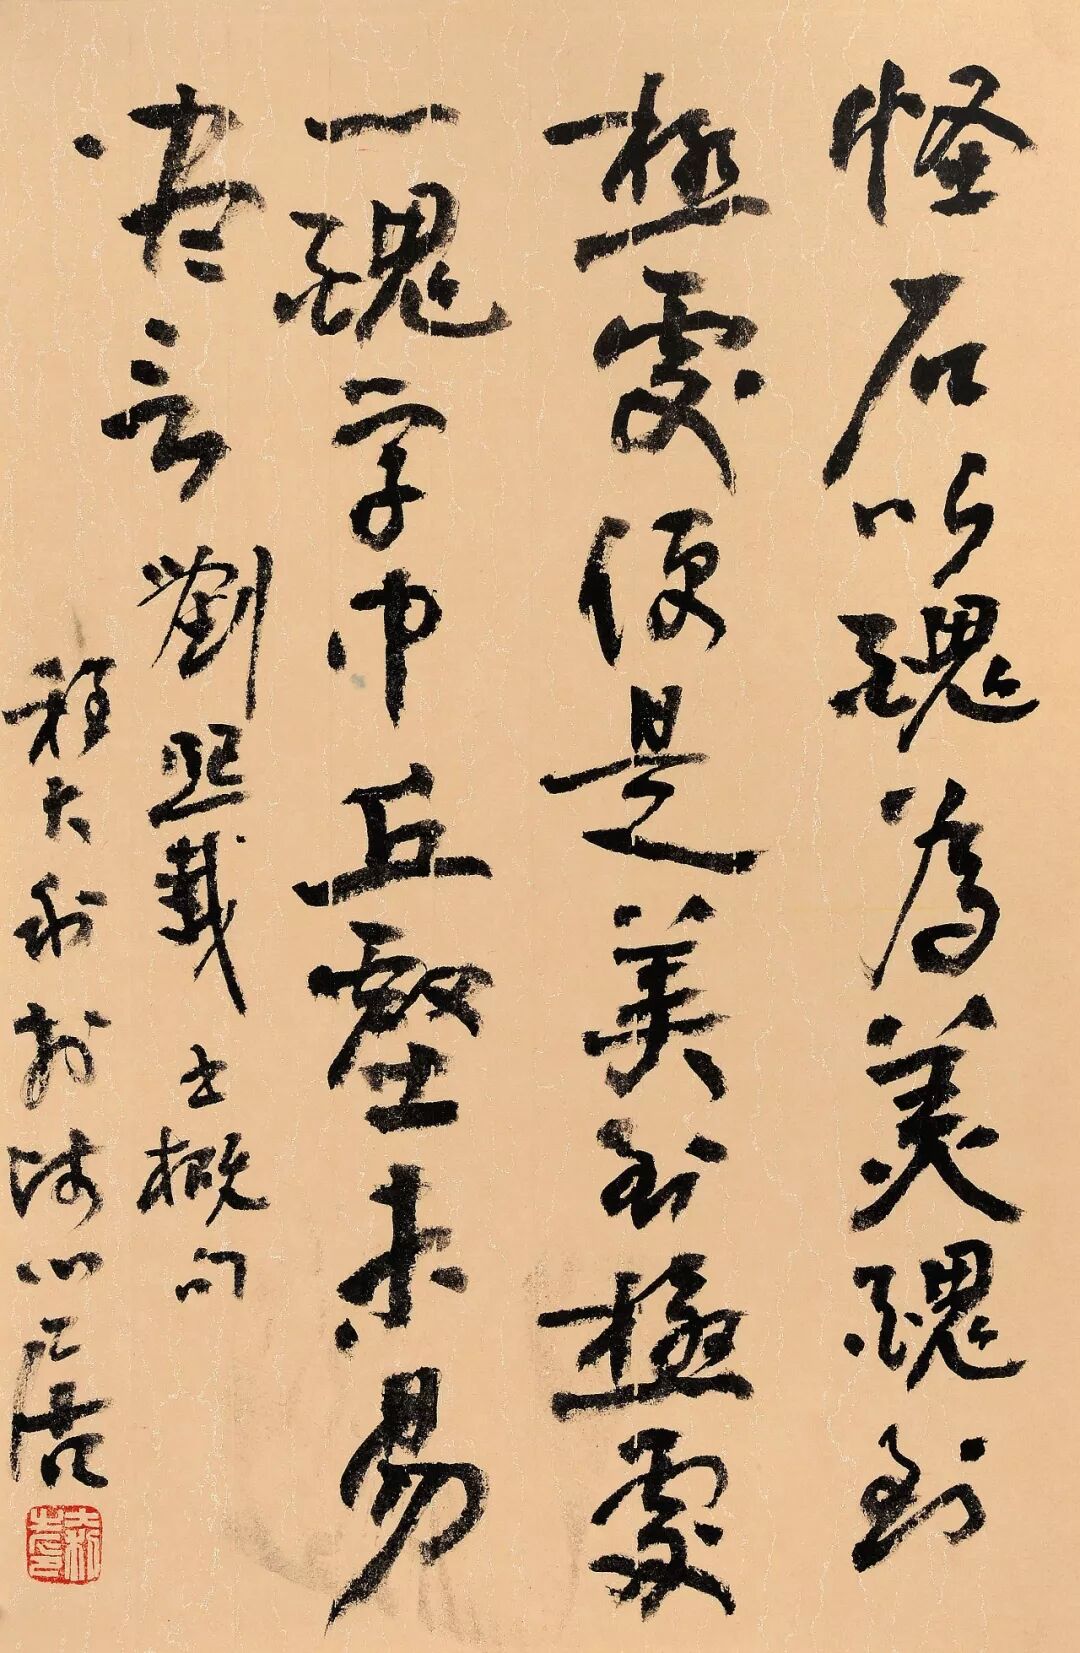 怪石以醜為美醜到
極處便是美到極處
一醜字中丘壑未易
盡言 劉熙載 書概句
程大利於師心居